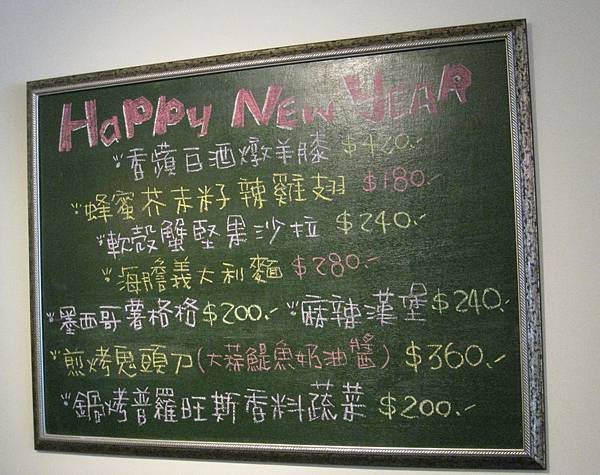 Happy New Year
*香蘋白酒燉羊膝 $420.-
*蜂蜜芥末籽辣雞翅 $180.-
*軟殼蟹堅果沙拉 $240.-
*海膽義大利麵 $280.-
*墨西哥薯格格 $200.- *麻辣漢堡 $240.-
*煎烤鬼頭刀(大蒜鯷魚奶油醬) $360.-
*鍋烤普羅旺斯香料蔬菜 $200.-